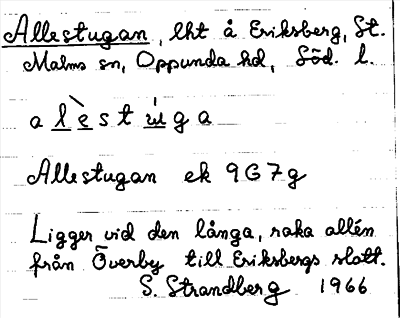 Allestugan, lht å Eriksberg, St.
Malms sn, Oppunda hd, Söd. l.
a l è s t ú g a
Allestugan ek 9G7g
Ligger vid den långa, raka allén
från Överby till Eriksbergs slott.
S. Strandberg 1966